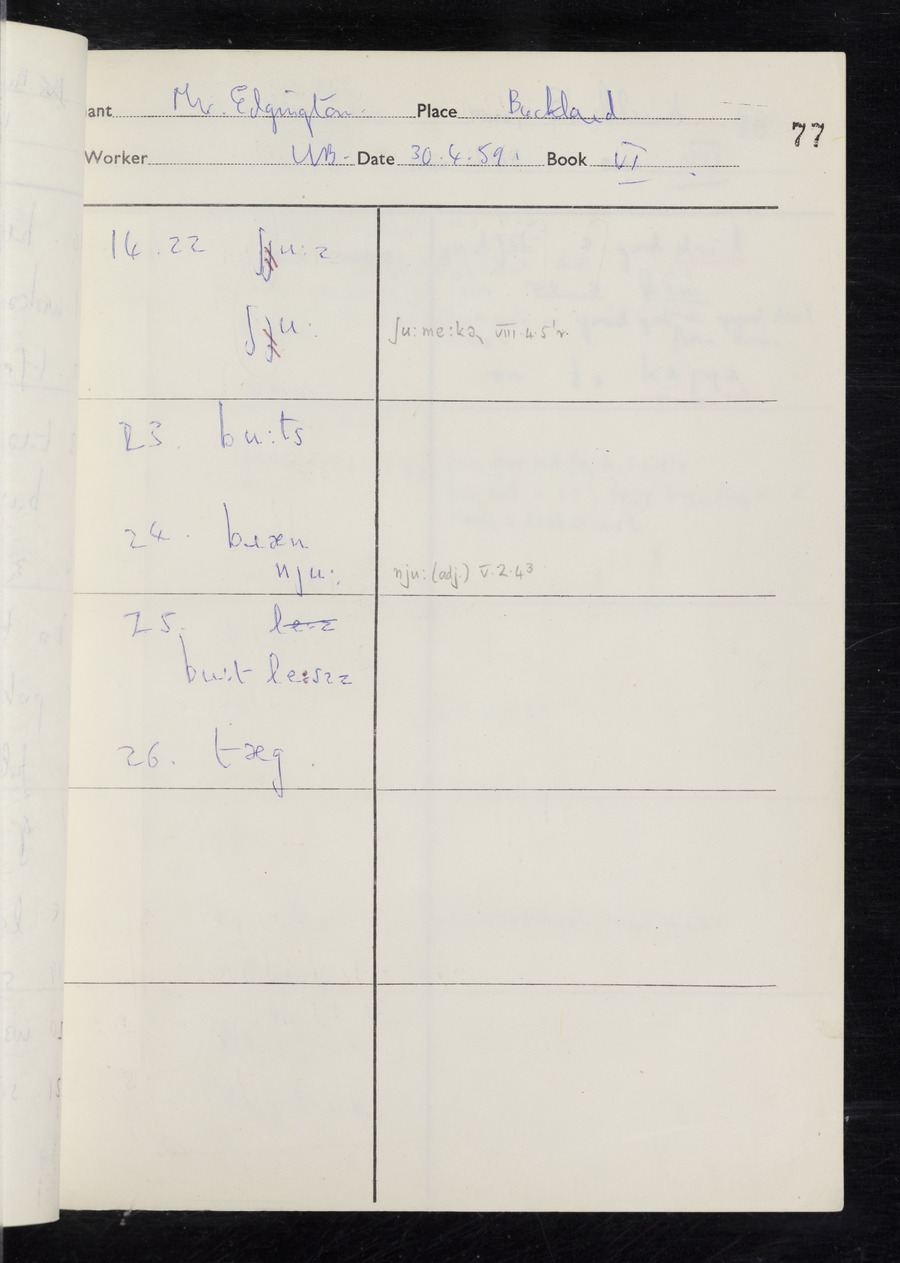 ant Mr. Edgington. Place Buckland
77
Worker Date 30.4.59. Book VI
14.22 ʃju:z
ʃju: ʃu:me:kə VIII.4.5
23. bu:ts
24. bɹæn
nju: nju: (adj.) V.2.4
25.
bu:t le:sɪz
26. tæg.